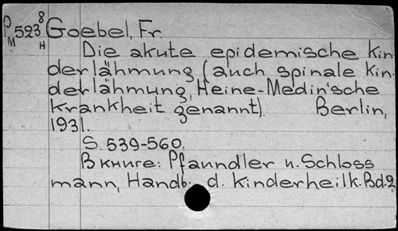 P 523 8 Goebel, Fr.
M H
Die akute epidemische Kin
derlähmung (auch spinale Kin
derlähmung, Heine-Medin'sche
Krankheit genannt). Berlin,
1931.
S. 539-560.
В книге: Pfaundler u. Schloss
mann, Handb. d. Kinderheilk. Bd.2